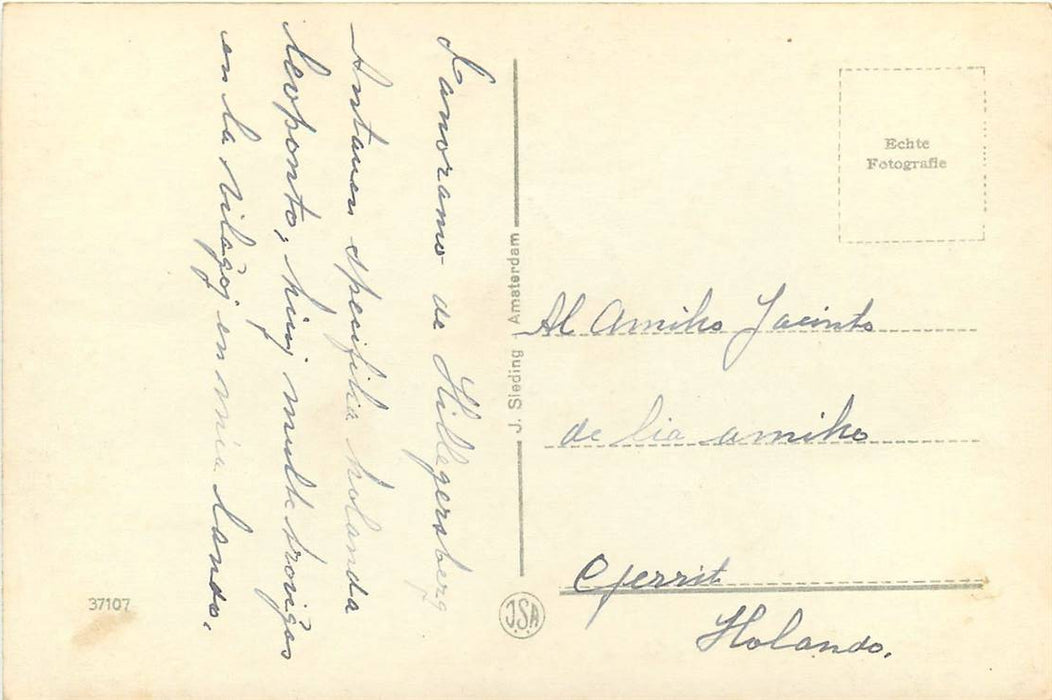 Panoramo de Hillegersberg
Antauen spesifika holanda
levponto, kiuj multe troviĝas
en la vilaĝoj en mia lando.
37107
J. Sleding - Amsterdam
JSA
Echte
Fotografie
Al Amiko Jacinto
de lia amiko
Gerrit
Holando.